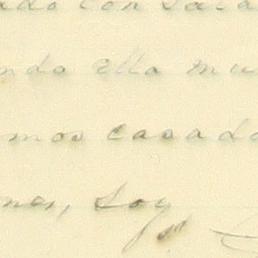 ado con
ndo ella mu
mos casado
nes, soy